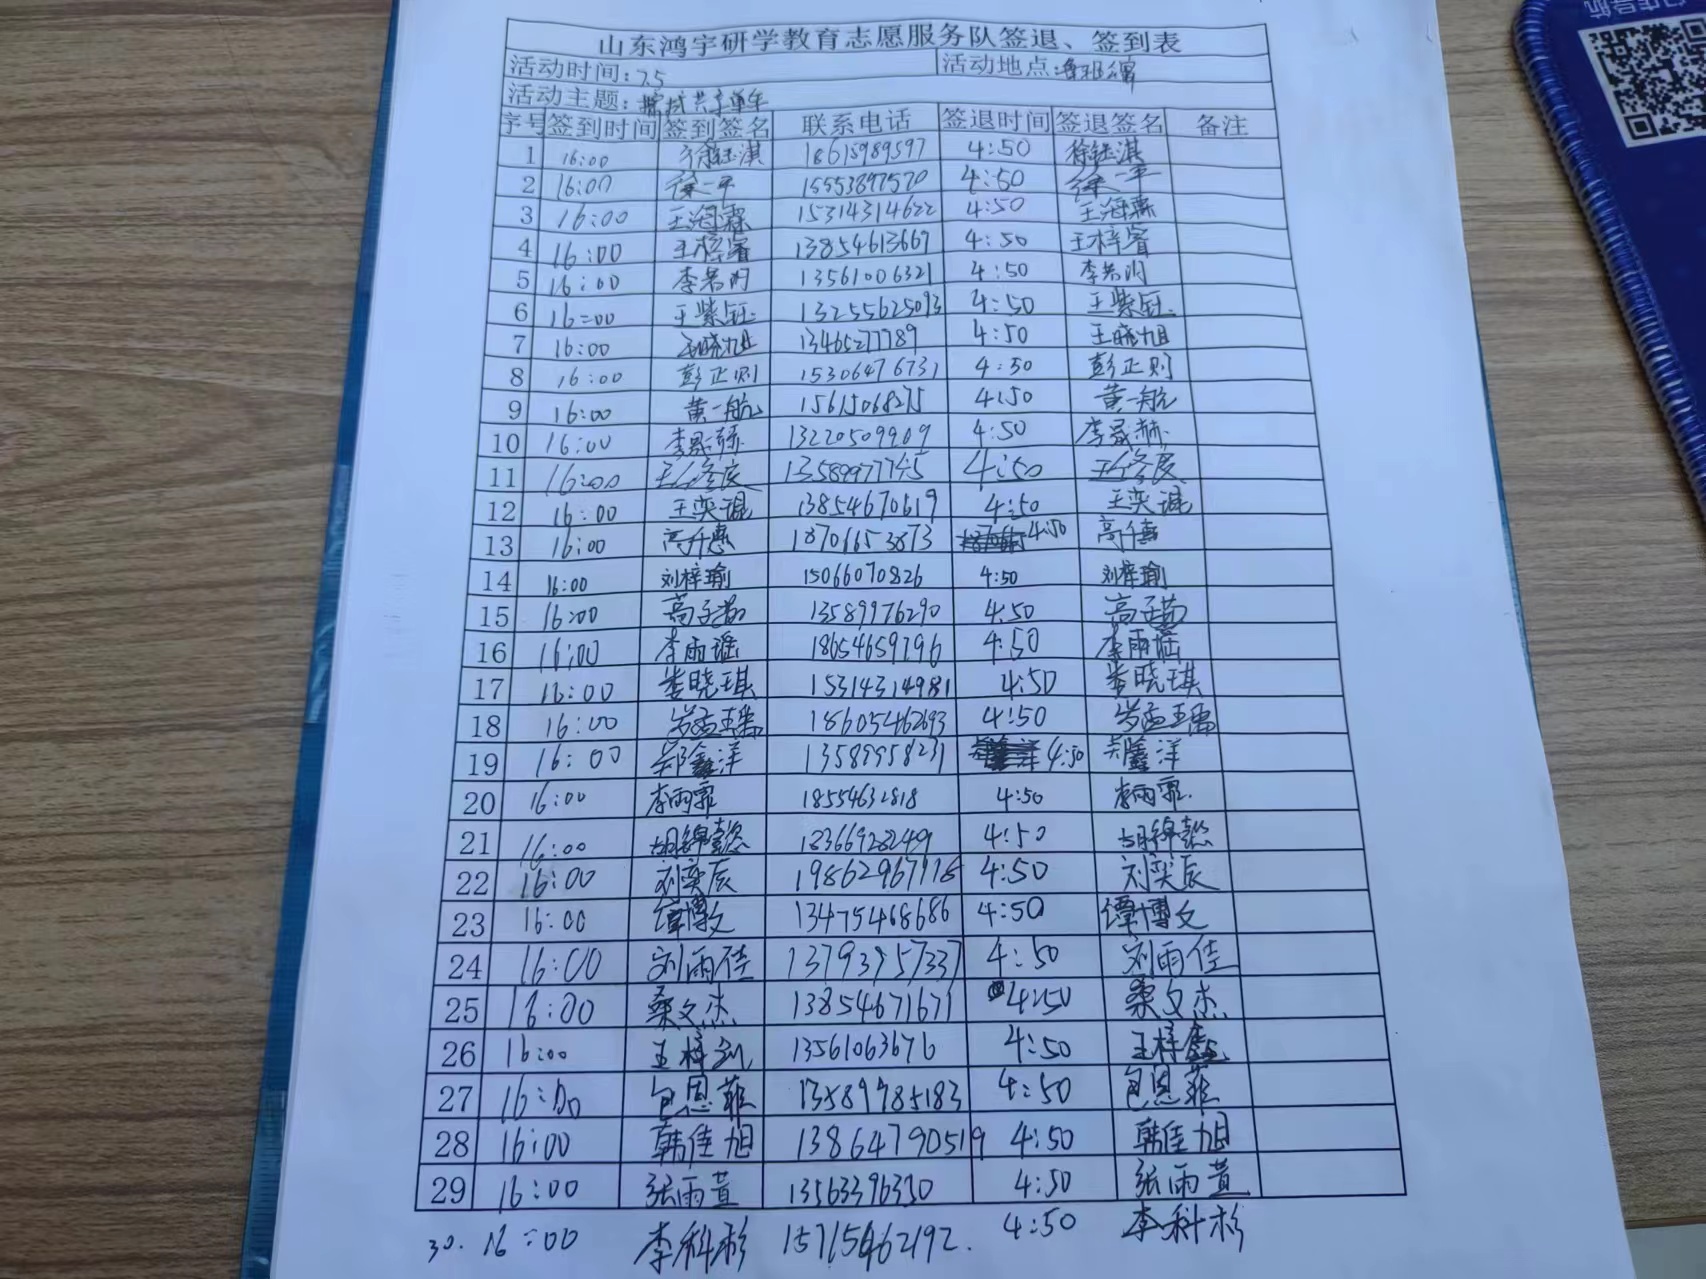 山东鸿宇研学教育志愿服务队签退、签到表
活动时间:7.5 活动地点:
活动主题:擦拭共享单车
序号 签到时间 签到签名 联系电话 签退时间 签退签名 备注
1 16:00 徐钰淇 18615989597 4:50 徐钰淇
2 16:00 徐一平 15553897570 4:50 徐一平
3 16:00 王海霖 15314314622 4:50 王海霖
4 16:00 王梓睿 13854613667 4:50 王梓睿
5 16:00 李若冈 13561006321 4:50 李若冈
6 16:00 王紫钰 13255625093 4:50 王紫钰
7 16:00 王晓旭 13465277789 4:50 王晓旭
8 16:00 彭正则 15306476731 4:50 彭正则
9 16:00 黄一航 15615068275 4:50 黄一航
10 16:00 李晟赫 13220509909 4:50 李晟赫
11 16:00 13589977745 4:50
12 16:00 王奕琨 13854670619 4:50 王奕琨
13 16:00 高千惠 18706653873 4:50 高千惠
14 16:00 刘梓瑜 15066070826 4:50 刘梓瑜
15 16:00 高子茹 13589976290 4:50 高子茹
16 16:00 李雨瑶 18654659796 4:50 李雨瑶
17 16:00 娄晓琪 15314314981 4:50 娄晓琪
18 16:00 岁孟璠 18605462693 4:50 岁孟璠
19 16:00 郑鑫洋 13589958231 4:50 郑鑫洋
20 16:00 李雨霏 18554632818 4:50 李雨霏
21 16:00 胡锦懿 18366928249 4:50 胡锦懿
22 16:00 刘奕辰 19862967118 4:50 刘奕辰
23 16:00 谭博文 13475468686 4:50 谭博文
24 16:00 刘雨佳 13793957337 4:50 刘雨佳
25 16:00 桑文杰 13854671671 4:50 桑文杰
26 16:00 王梓鑫 13561063676 4:50 王梓鑫
27 16:00 包恩菲 13589985183 4:50 包恩菲
28 16:00 韩佳旭 13864790519 4:50 韩佳旭
29 16:00 张雨萱 13563396330 4:50 张雨萱
30. 16:00 李科杉 15715462192. 4:50 李科杉